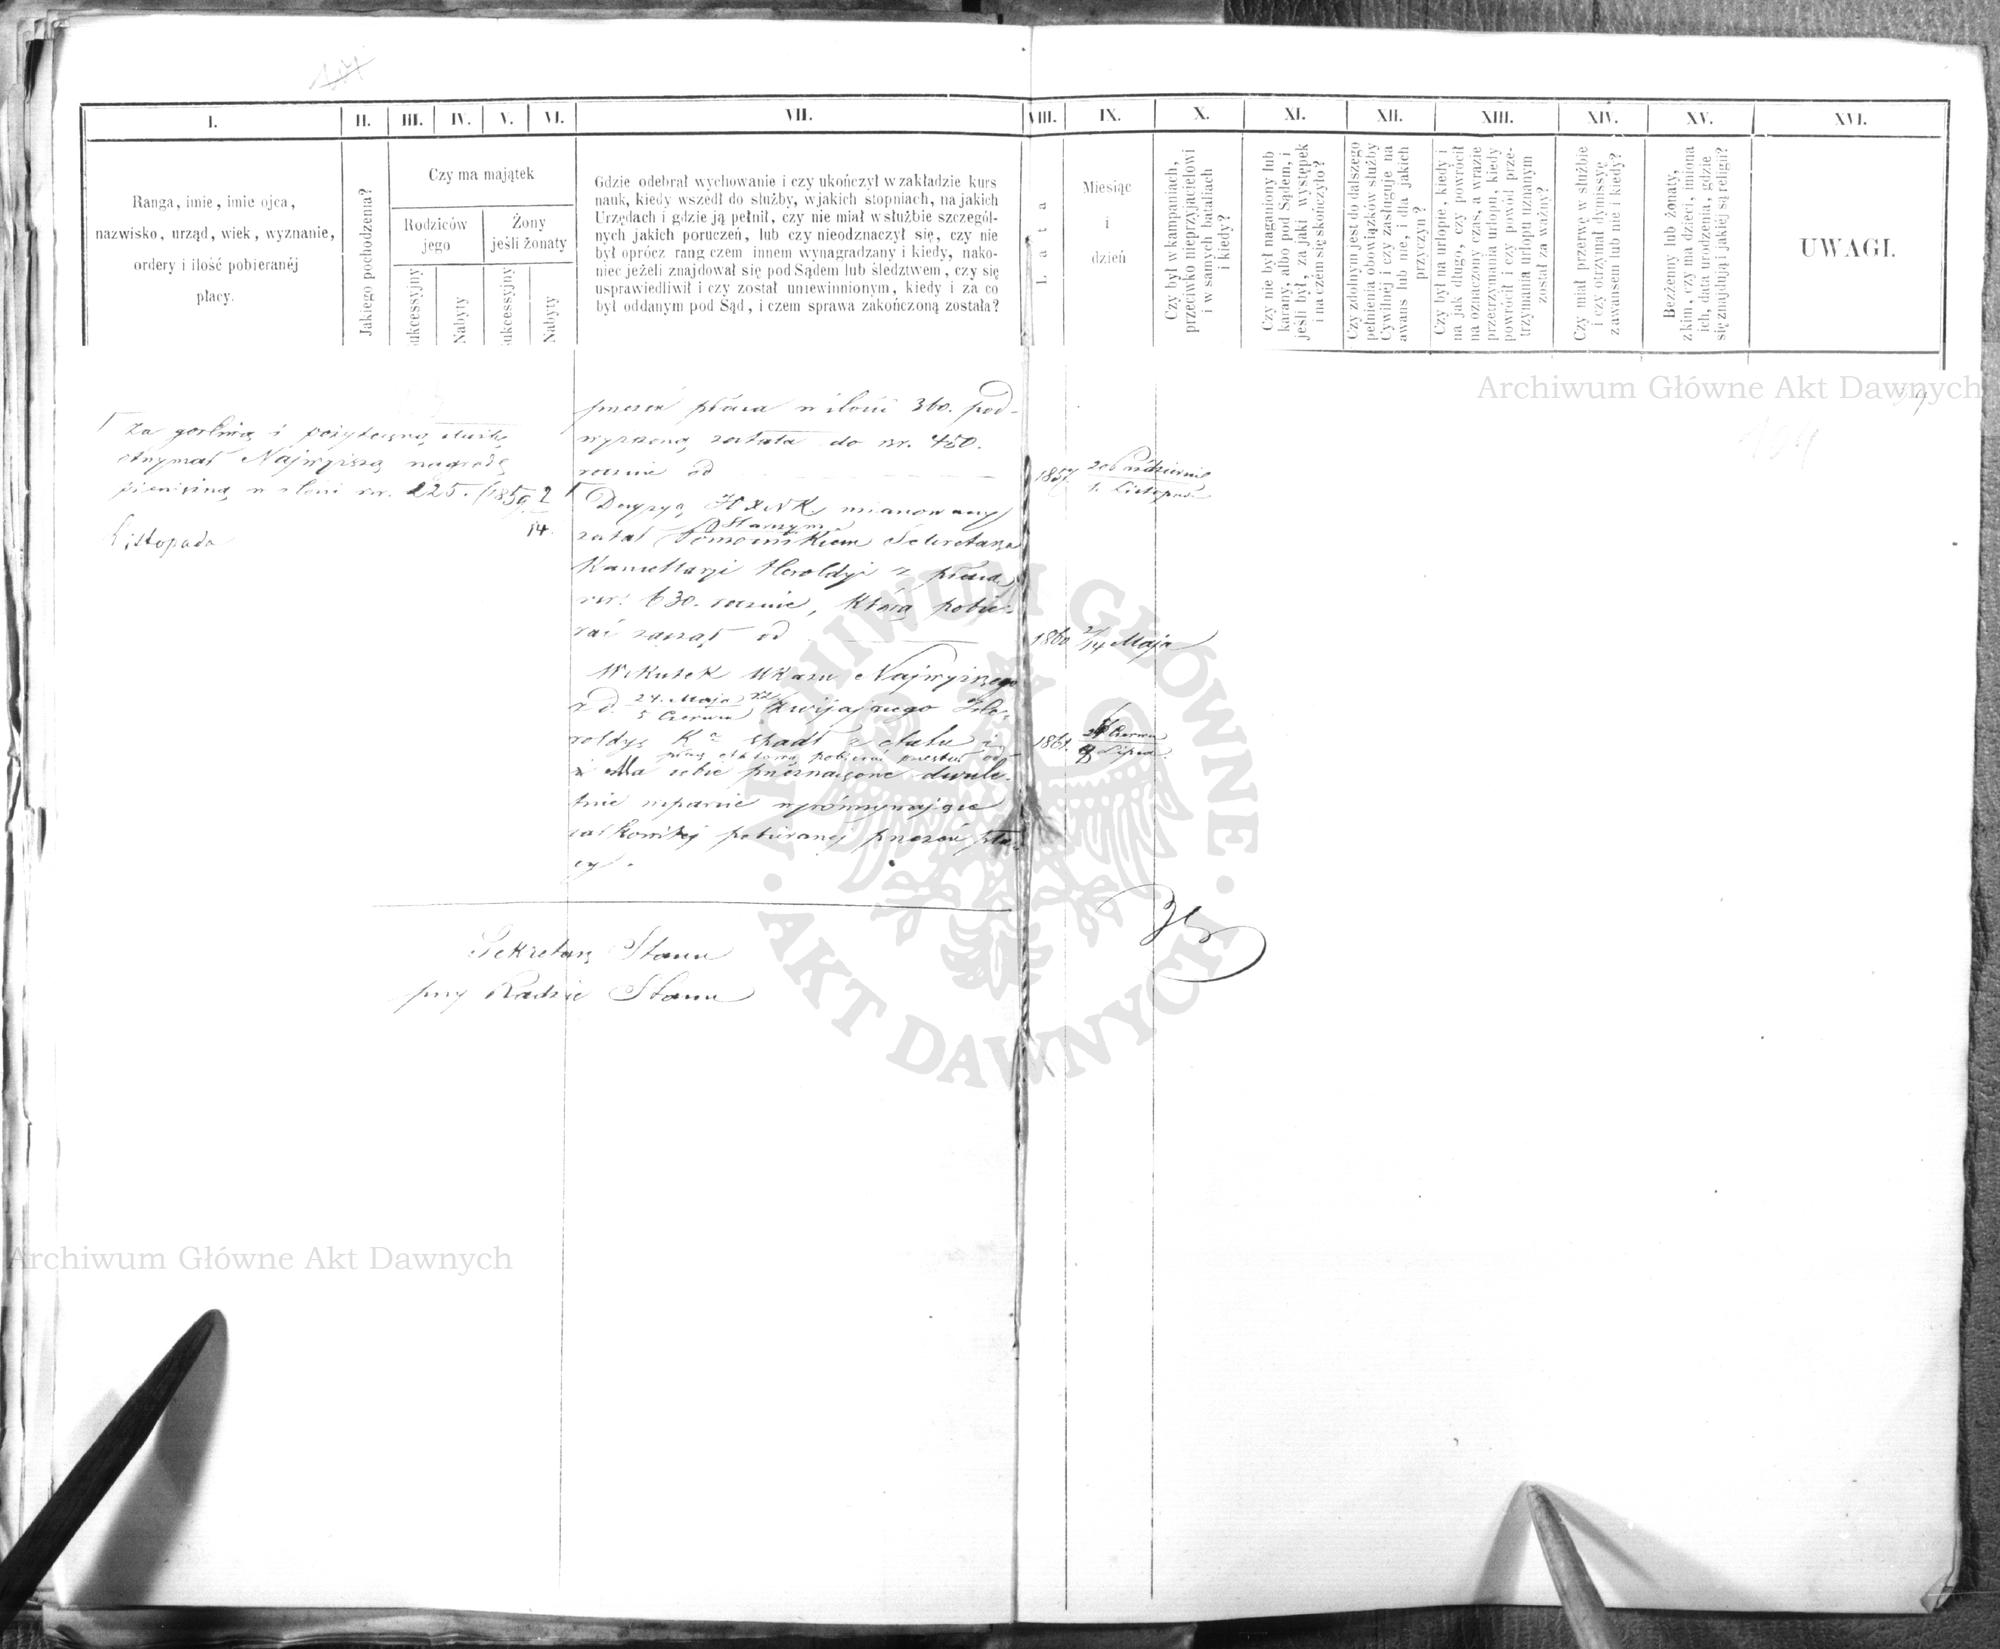 I.
II.
III.
IV.
V.
VI.
VII.
VIII.
IX.
X.
XI.
XII.
XIII.
XIV.
XV.
XVI.
Ranga, imie, imie ojca,
nazwisko, urząd, wiek, wyznanie,
ordery i ilość pobieranéj
płacy.
Jakiego pochodzenia?
Czy ma majątek
Rodziców
jego
Żony
jeśli żonaty
sukcessyjny
Nabyty
sukcessyjny
Nabyty
Gdzie odebrał wychowanie i czy ukończył w zakładzie kurs
nauk, kiedy wszedł do służby, w jakich stopniach, na jakich
Urzędach i gdzie ją pełnił, czy nie miał w służbie szczegól-
nych jakich poruczeń, lub czy nieodznaczył się, czy nie
był oprócz rang czem innem wynagradzany i kiedy, nako-
niec jeżeli znajdował się pod Sądem lub śledztwem, czy się
usprawiedliwił i czy został uniewinnionym, kiedy i za co
był oddanym pod Sąd, i czem sprawa zakończoną została?
Lata
Miesiąc
i
dzień
Czy był w kampaniach,
przeciwko nieprzyjacielowi
i w samych bataliach
i kiedy?
Czy nie był naganiony lub
karany, albo pod Sądem, i
jeśli był, za jaki występek
i na czem się skończyło?
Czy zdolnym jest do dalszego
pełnienia obowiązków służby
Cywilnej i czy zasługuje na
awans lub nie, i dla jakich
przyczyn?
Czy był na urlopie, kiedy i
na jak długo, czy powrócił
na oznaczony czas, a w razie
przetrzymania urlopu, kiedy
powrócił i czy powód prze-
trzymania urlopu uznanym
został za ważny?
Czy miał przerwę w służbie
i czy otrzymał dymissyę
z awansem lub nie i kiedy?
Bezżenny lub żonaty,
z kim, czy ma dzieci, imiona
ich, data urodzenia, gdzie
się znajdują i jakiej są religii?
UWAGI.
Archiwum Główne Akt Dawnych
za gorliwą i pożyteczną służbę
otrzymał Najwyższą nagrodę
pieniężną w ilości rsr. 225. (1859 2/14.
Listopada
przeza płaca w ilości 360. pod-
wyższoną została do sr. 450.
rocznie od
1857. 20 Październik/1. Listopad
Decyzyą mianowany
został Starszym Pomocnikiem Sekretarza
Kancellaryi Heroldyi z płacą
rsr. 630. rocznie, którą pobie-
rać zaczął od
1860 2/14 Maja
Wskutek Ukazu Najwyższego
z d. 24. Maja/5 Czerwca zwijającego He-
roldyę spadł z etatu i
płacę etatową pobierać przestał od
1861. Czerwca/Lipca.
i Ma sobie przyznane dwule-
tnie wparcie wyrównywające
całkowitej pobieranej przezeń pła-
cy.
Sekretarz Stanu
przy Radzie Stanu
ARCHIWUM GŁÓWNE AKT DAWNYCH
Archiwum Główne Akt Dawnych